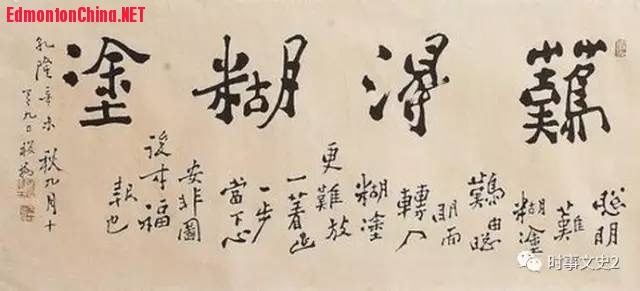 EdmontonChina.NET
難得糊塗
聰明
難
糊塗
難由聰
明而
轉入
糊塗
更難放
一著退
一步
當下心
安非圖
後來福
報也
乾隆辛未秋九月十
又九日板橋
时事文史2